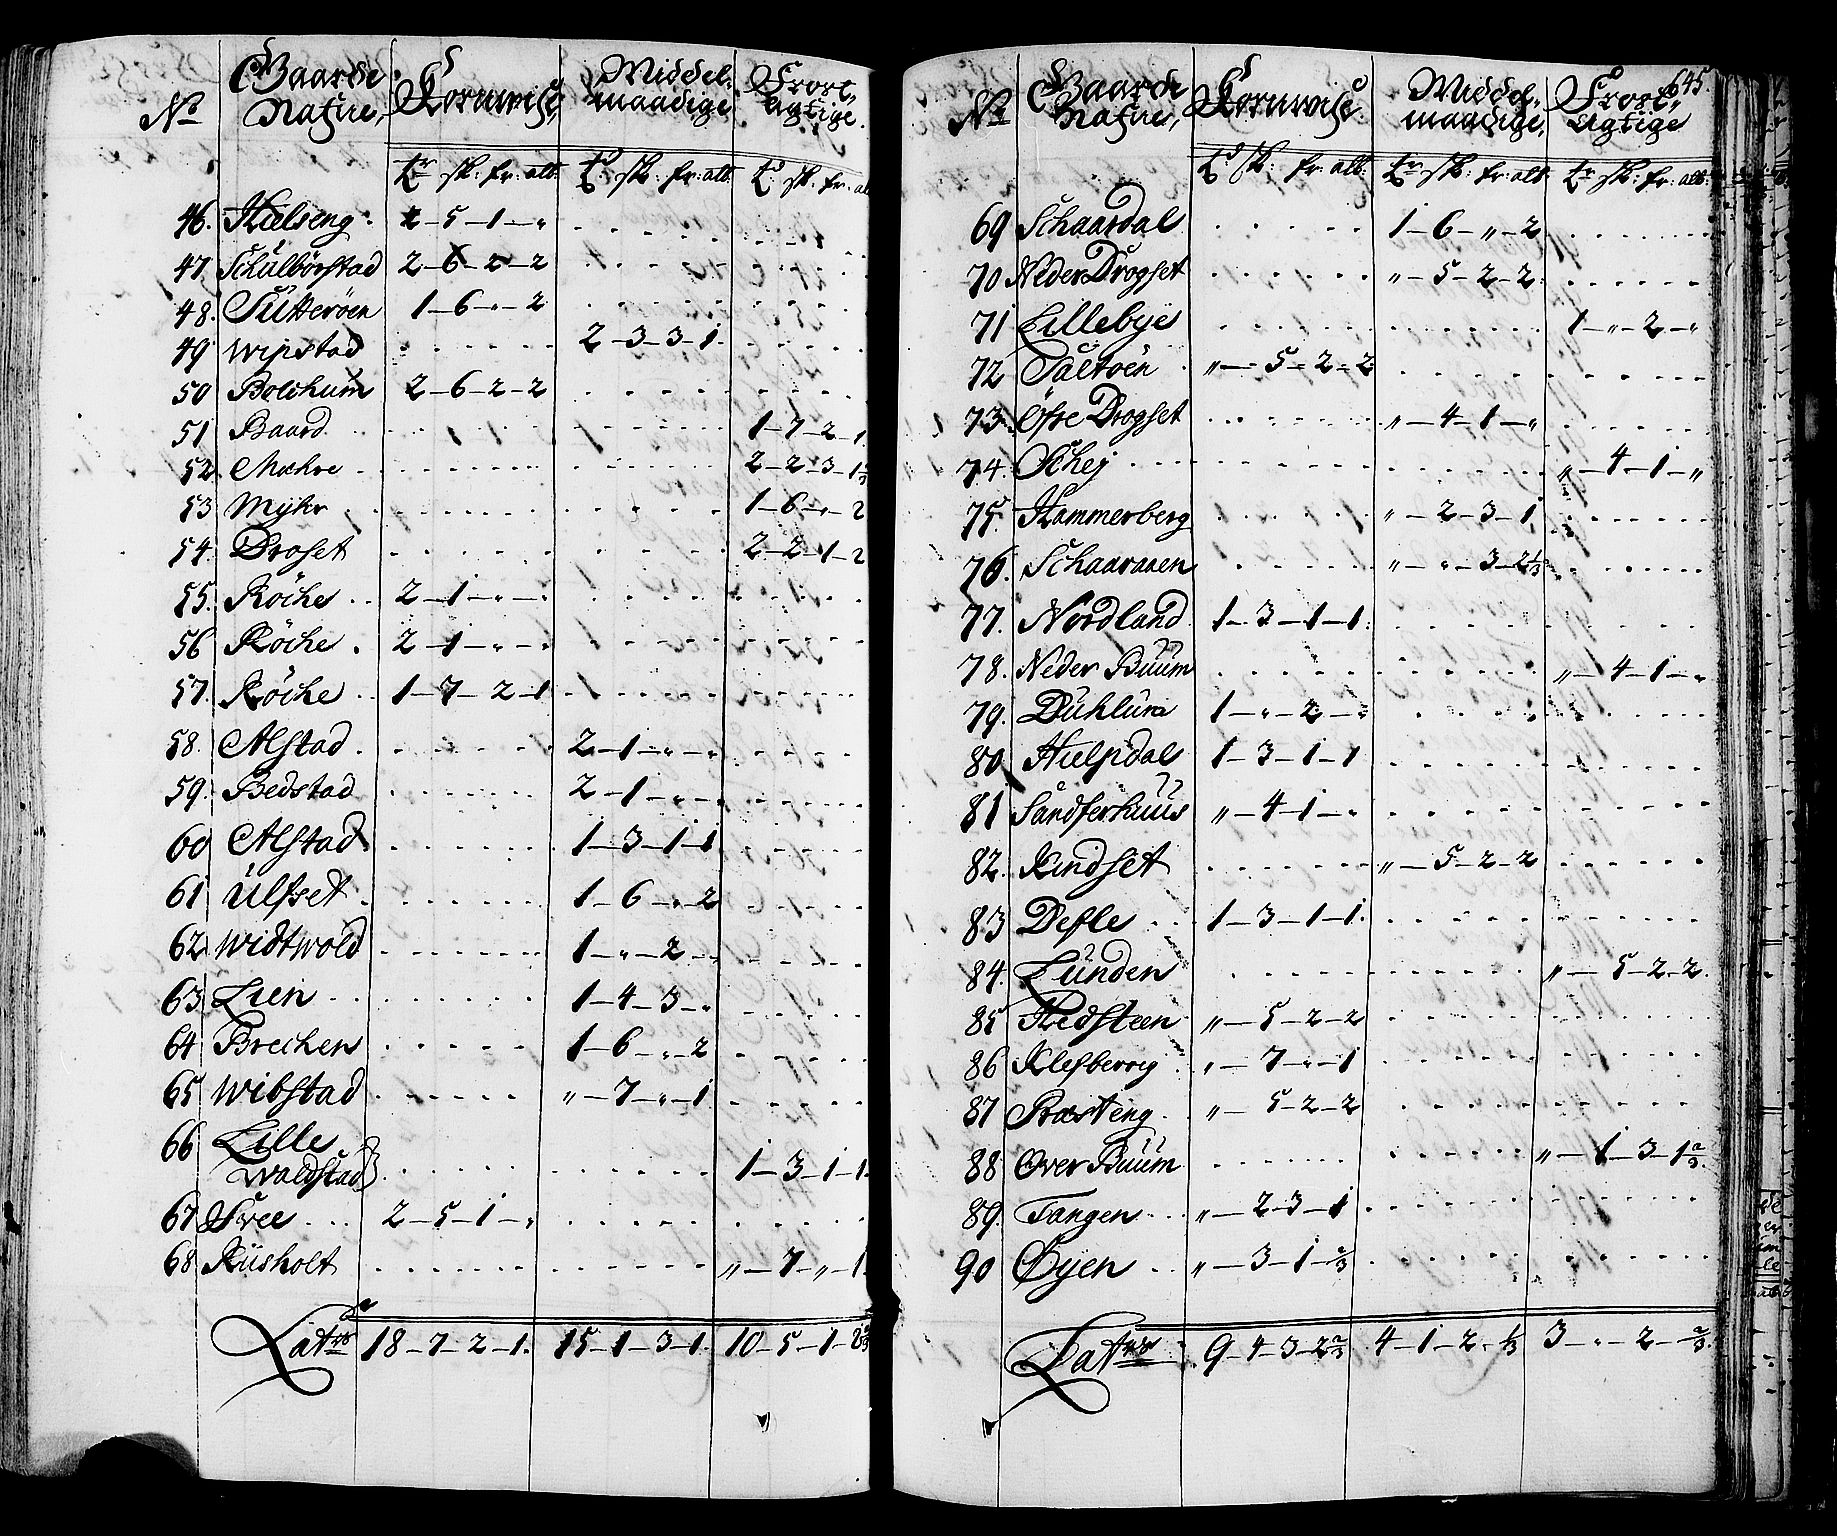 No Gaarde Nafne, Kornwiſs, Middelmaadige Frostagtige.
tr sk: fr: alb. td sk: fr: alb. td sk: fr: al
46. Hielseng 2-5-1-"
47 Schülbörstad 2-6-2-2
48. Sütteröen 1-6-"-2
49 Wipstad 2-3-3-1.
50 Bolchum 2-6-2-2
51 Baard 1-7-2-1
52. Mæhre 2-2-3-1⅓
53 Myhr 1-6-"-2
54. Droset 2-2-1-2
55. Röche 2-1-"-"
56 Röche 2-1-"-"
57. Röche 1-7-2-1
58. Alstad 2-1-"-"
59. Bedstad 2-1-"-"
60 Alstad 1-3-1-1
61 Ulfset 1-6-"-2
62 Widtwold 1-"-2-"
63 Lien 1-4-3-"
64 Brechen 1-6-"-2
65 Wibstad "-7-"-1
66 Lille
Waldstad 1-3-1-1.
67 Svee 2-5-1-"
68 Rüsholt "-7-"-1.
Latus 18-7-2-1. 15-1-3-1. 10-5-1-2⅓
645.
No Gaarde Nafne, Kornwiſs. Middelmaadige, Frostagtige
td sk: fr: alb. tr sk: fr: alb. tr sk: fr: alb.
69 Schaardal 1-6-"-2
70 Neder Drogset "-5-2-2.
71 Lillebye 1-"-2-"
72 Saltöen "-5-2-2
73. Öfre Drogset "-4-1-"
74. Schej "-4-1-"
75. Hammerberg "-2-3-1
76. Schaaraaen "-"-3-2⅓
77. Nordland 1-3-1-1.
78. Neder Buum "-4-1-"
79. Duhlum 1-"-2-"
80 Hielpdal 1-3-1-1
81 Sandferhuus "-4-1-"
82. Rindset "-5-2-2
83 Defle 1-3-1-1.
84. Lunden "-5-2-2.
85 Hedsteen "-5-2-2
86 Klefberrig "-7-"-1
87 Præsteng "-5-2-2
88 Over Buum "-1-3-1⅔.
89. Tangen "-2-3-1
90 Øyen "-3-1-⅔
Latus 9-4-3-2⅔ 4-1-2-⅓ 3-"-2-⅔.